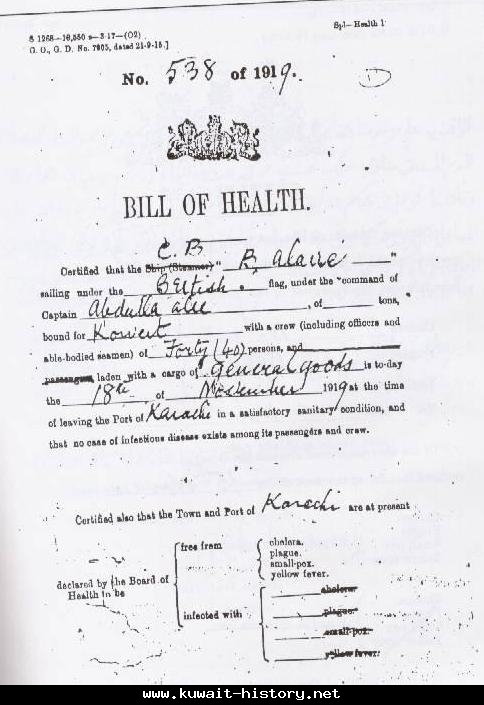 Spl—Health 1
S 1268—16,550 s—3-17—(O2)
G. O., G. D. No. 7605, dated 21-9-15.]
No. 538 of 1919.
BILL OF HEALTH.
C. B
Certified that the Ship (Steamer) " B, "
sailing under the British. flag, under the command of
Captain Abdulla , of tons,
bound for Koweit with a crew (including officers and
able-bodied seamen) of Forty (40) persons, and
passengers, laden with a cargo of General goods is to-day
the 18th of November 1919 at the time
of leaving the Port of Karachi in a satisfactory sanitary condition, and
that no case of infectious disease exists among its passengers and crew.
Certified also that the Town and Port of Karachi are at present
declared by the Board of
Health to be
free from
cholera.
plague.
small-pox.
yellow fever.
infected with
cholera.
plague.
small-pox.
yellow fever.
www.kuwait-history.net